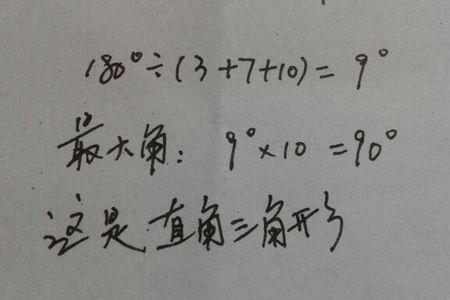 180°÷(3+7+10)=9°
最大角: 9°×10=90°
这是直角三角形